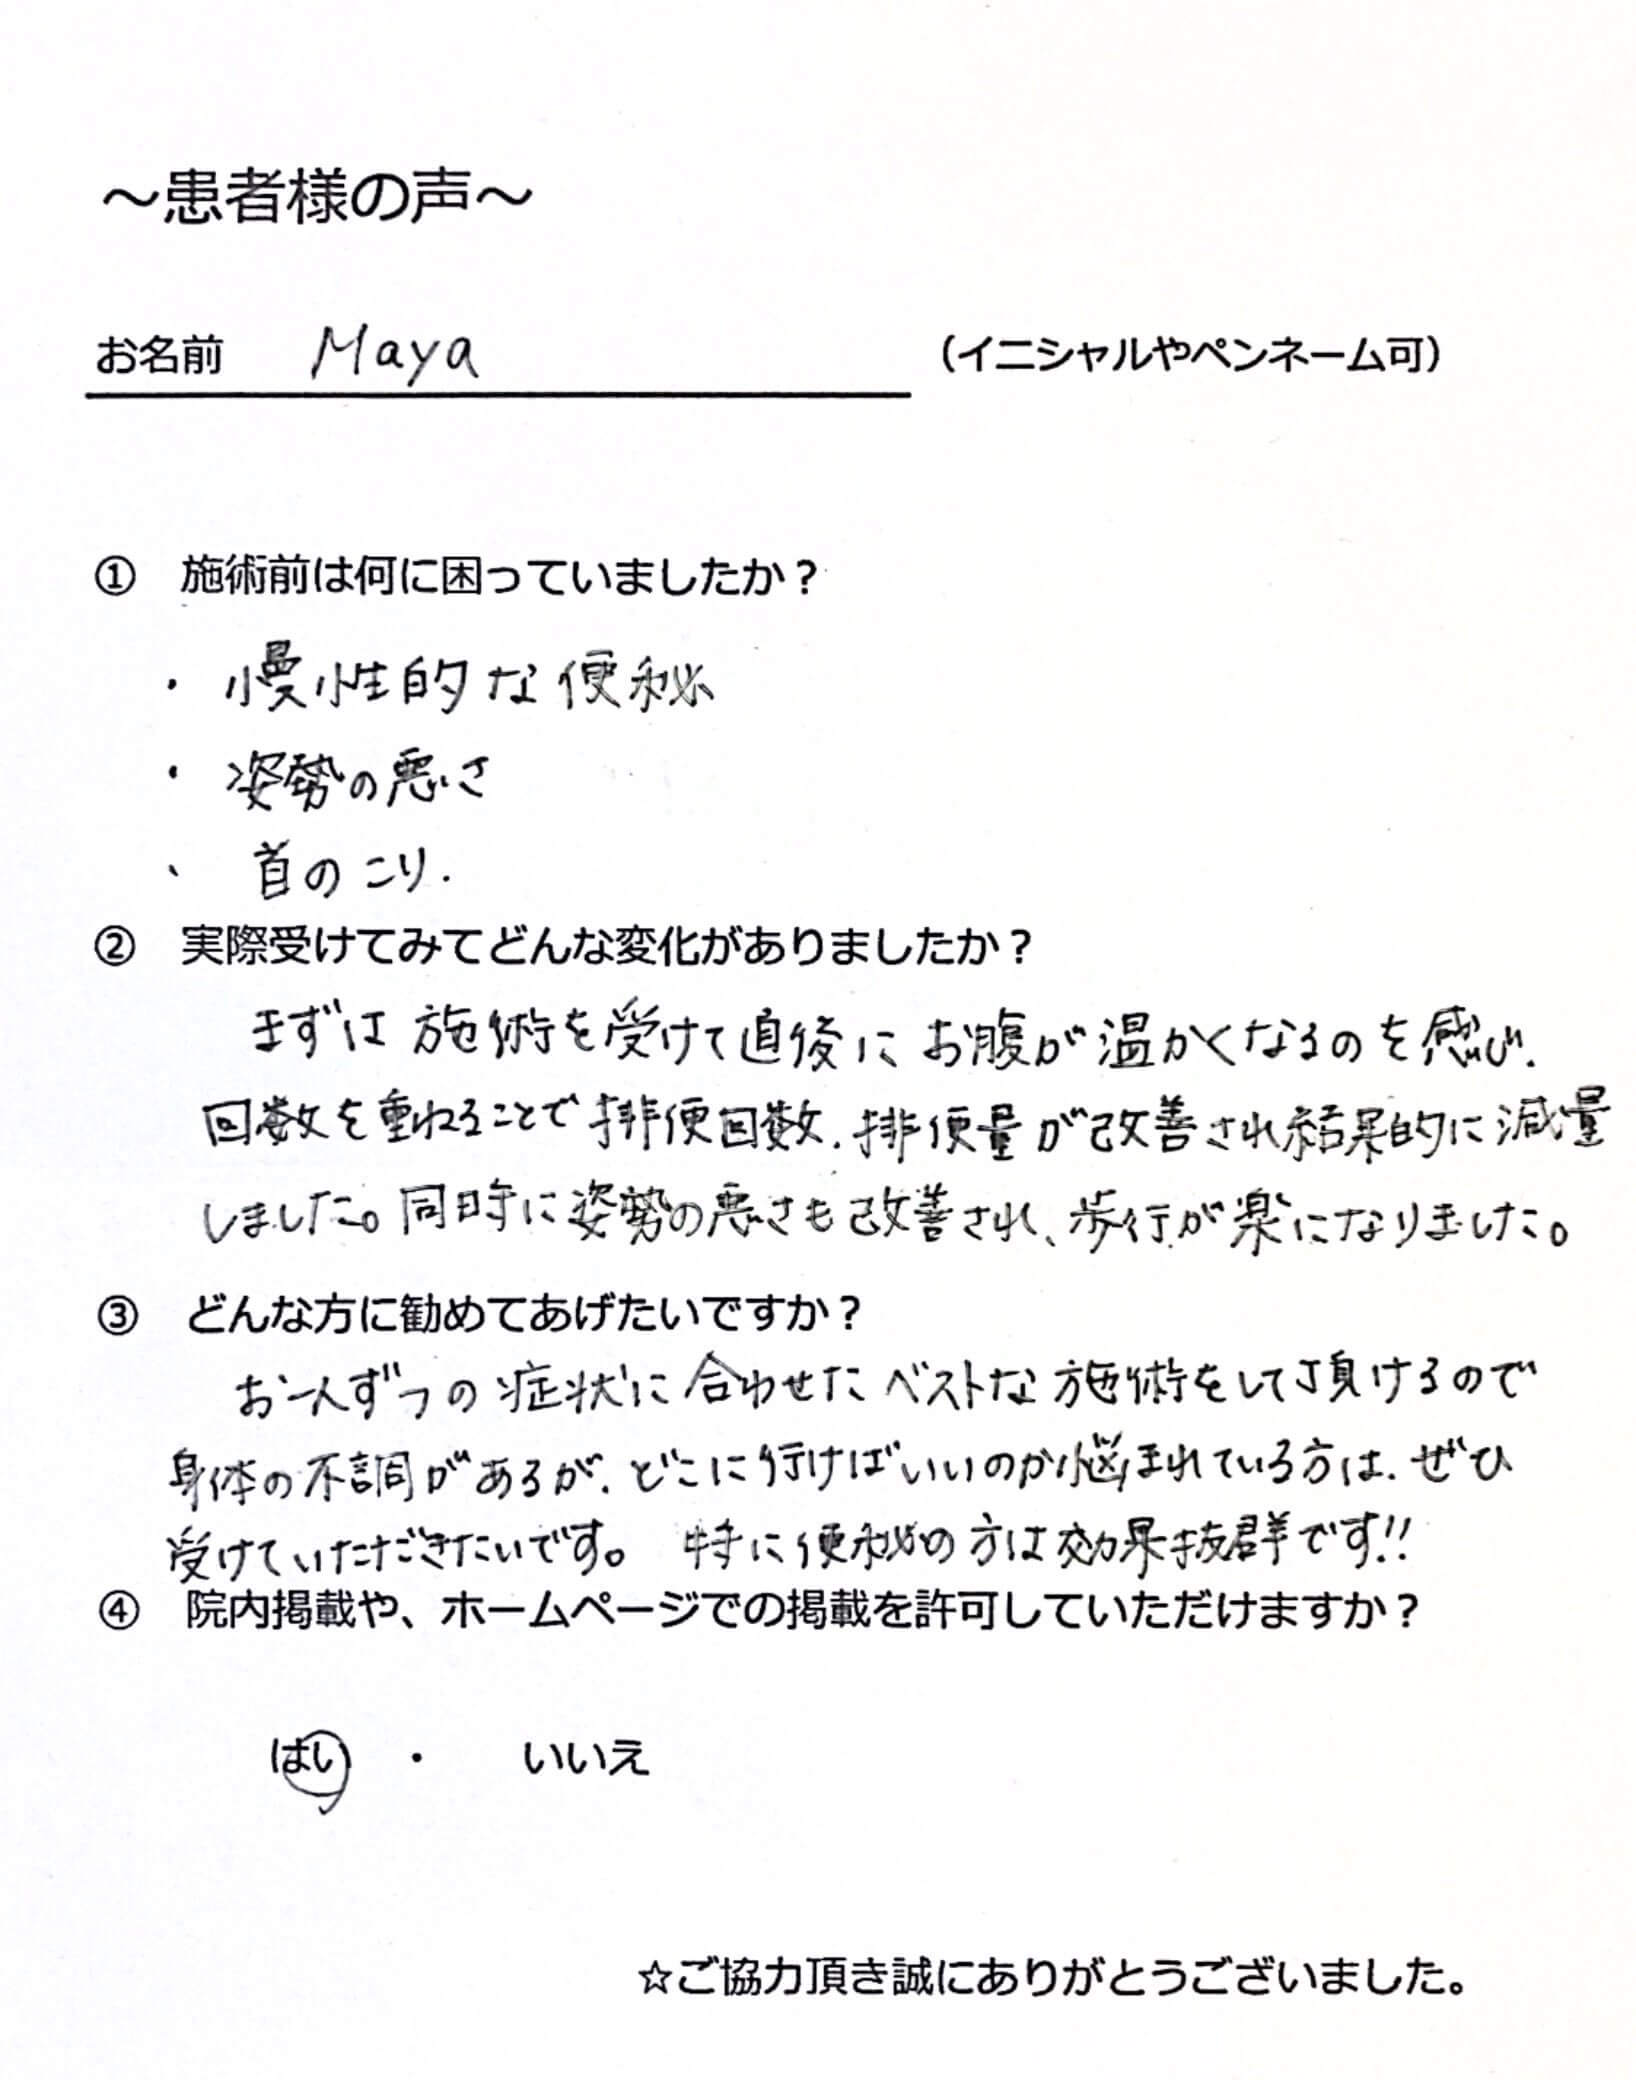 ～患者様の声～
お名前 Maya （イニシャルやペンネーム可）
① 施術前は何に困っていましたか？
・慢性的な便秘
・姿勢の悪さ
、首のこり.
② 実際受けてみてどんな変化がありましたか？
まずは施術を受けて直後にお腹が温かくなるのを感じ.
回数を重ねることで排便回数.排便量が改善され結果的に減量
しました。同時に姿勢の悪さも改善され、歩行が楽になりました。
③ どんな方に勧めてあげたいですか？
お一人ずつの症状に合わせたベストな施術をして頂けるので
身体の不調があるが.どこに行けばいいのか悩まれている方は.ぜひ
受けていただきたいです。 特に便秘の方は効果抜群です!!
④ 院内掲載や、ホームページでの掲載を許可していただけますか？
はい ・ いいえ
☆ご協力頂き誠にありがとうございました。